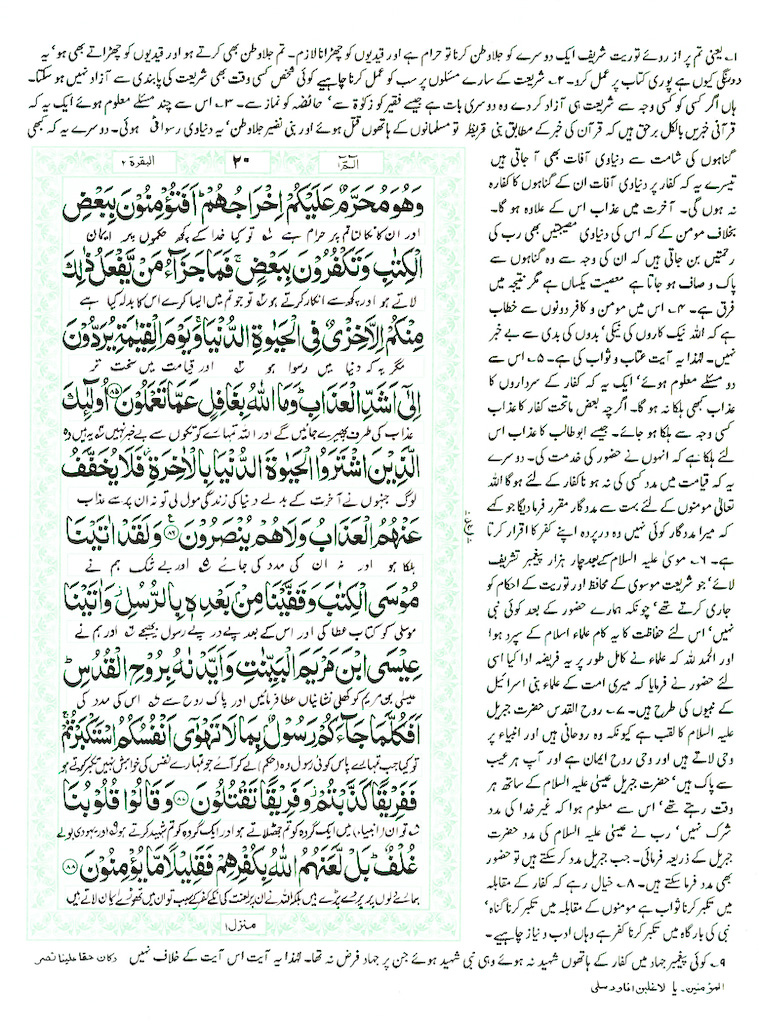 ۱؎ یعنی تم پر از روئے توریت شریف ایک دوسرے کو جلاوطن کرنا تو حرام ہے اور قیدیوں کو چھڑانا لازم۔ تم جلاوطن بھی کرتے ہو اور قیدیوں کو چھڑاتے بھی ہو' یہ
دورنگی کیوں ہے پوری کتاب پر عمل کرو۔ ۲؎ شریعت کے سارے مسئلوں پر سب کو عمل کرنا چاہیے کوئی شخص کسی وقت بھی شریعت کی پابندی سے آزاد نہیں ہو سکتا۔
ہاں اگر کسی کو کسی وجہ سے شریعت ہی آزاد کر دے وہ دوسری بات ہے جیسے فقیر کو زکوٰۃ سے' حائضہ کو نماز سے۔ ۳؎ اس سے چند مسئلے معلوم ہوئے ایک یہ کہ
قرآنی خبریں بالکل برحق ہیں کہ قرآن کی خبر کے مطابق بنی قریظہ تو مسلمانوں کے ہاتھوں قتل ہوئے اور بنی نضیر جلاوطن' یہ دنیاوی رسوائی ہوئی۔ دوسرے یہ کہ کبھی
گناہوں کی شامت سے دنیاوی آفات بھی آ جاتی ہیں
تیسرے یہ کہ کفار پر دنیاوی آفات ان کے گناہوں کا کفارہ
نہ ہوں گی۔ آخرت میں عذاب اس کے علاوہ ہو گا۔
بخلاف مومن کے کہ اس کی دنیاوی مصیبتیں بھی رب کی
رحمتیں بن جاتی ہیں کہ ان کی وجہ سے وہ گناہوں سے
پاک و صاف ہو جاتا ہے معصیت یکساں ہے مگر نتیجہ میں
فرق ہے۔ ۴؎ اس میں مومن و کافر دونوں سے خطاب
ہے کہ اللہ نیک کاروں کی نیکی' بدوں کی بدی سے بے خبر
نہیں۔ لہٰذا یہ آیت عتاب و ثواب کی ہے۔ ۵؎ اس سے
دو مسئلے معلوم ہوئے' ایک یہ کہ کفار کے سرداروں کا
عذاب کبھی ہلکا نہ ہو گا۔ اگرچہ بعض ماتحت کفار کا عذاب
کسی وجہ سے ہلکا ہو جائے۔ جیسے ابوطالب کا عذاب اس
لئے ہلکا ہے کہ انہوں نے حضور کی خدمت کی۔ دوسرے
یہ کہ قیامت میں مدد کسی کی نہ ہونا کفار کے لئے ہو گا اللہ
تعالیٰ مومنوں کے لئے بہت سے مددگار مقرر فرما دیگا جو کہے
کہ میرا مددگار کوئی نہیں وہ درپردہ اپنے کفر کا اقرار کرتا
ہے۔ ۶؎ موسیٰ علیہ السلام کے بعد چار ہزار پیغمبر تشریف
لائے' جو شریعت موسوی کے محافظ اور توریت کے احکام کو
جاری کرتے تھے' چونکہ ہمارے حضور کے بعد کوئی نبی
نہیں' اس لئے حفاظت کا یہ کام علماء اسلام کے سپرد ہوا'
اور الحمد للہ کہ علماء نے کامل طور پر یہ فریضہ ادا کیا اسی
لئے حضور نے فرمایا کہ میری امت کے علماء بنی اسرائیل
کے نبیوں کی طرح ہیں۔ ۷؎ روح القدس حضرت جبریل
علیہ السلام کا لقب ہے کیونکہ وہ روحانی ہیں اور انبیاء پر
وحی لاتے ہیں اور وحی روح ایمان ہے اور آپ ہر عیب
سے پاک ہیں' حضرت جبریل عیسیٰ علیہ السلام کے ساتھ ہر
وقت رہتے تھے' اس سے معلوم ہوا کہ غیر خدا کی مدد
شرک نہیں' رب نے عیسیٰ علیہ السلام کی مدد حضرت
جبریل کے ذریعہ فرمائی۔ جب جبریل مدد کر سکتے ہیں تو حضور
بھی مدد فرما سکتے ہیں۔ ۸؎ خیال رہے کہ کفار کے مقابلہ
میں تکبر کرنا ثواب ہے مومنوں کے مقابلہ میں تکبر کرنا گناہ'
نبی کی بارگاہ میں تکبر کرنا کفر ہے وہاں ادب و نیاز چاہیے۔
البقرة ۲
۲۰
الٓمّٓ
وَهُوَ مُحَرَّمٌ عَلَيْكُمْ اِخْرَاجُهُمْ ؕ اَفَتُؤْمِنُوْنَ بِبَعْضِ
اور ان کا نکالنا تم پر حرام ہے تو کیا خدا کے کچھ حکموں پر ایمان
الْكِتٰبِ وَتَكْفُرُوْنَ بِبَعْضٍ ۚ فَمَا جَزَآءُ مَنْ يَّفْعَلُ ذٰلِكَ
لاتے ہو اور کچھ سے انکار کرتے ہو تو جو تم میں ایسا کرے اس کا بدلہ کیا ہے
مِنْكُمْ اِلَّا خِزْیٌ فِی الْحَيٰوةِ الدُّنْيَا ۚ وَيَوْمَ الْقِيٰمَةِ يُرَدُّوْنَ
مگر یہ کہ دنیا میں رسوا ہو اور قیامت میں سخت تر
اِلٰۤی اَشَدِّ الْعَذَابِ ؕ وَمَا اللّٰهُ بِغَافِلٍ عَمَّا تَعْمَلُوْنَ ﴿۸۵﴾ اُولٰٓئِكَ
عذاب کی طرف پھیرے جائیں گے اور اللہ تمہارے کوتکوں سے بے خبر نہیں یہ ہیں وہ
الَّذِيْنَ اشْتَرَوُا الْحَيٰوةَ الدُّنْيَا بِالْاٰخِرَةِ ۫ فَلَا يُخَفَّفُ
لوگ جنہوں نے آخرت کے بدلے دنیا کی زندگی مول لی تو نہ ان پر سے عذاب
عَنْهُمُ الْعَذَابُ وَلَا هُمْ يُنْصَرُوْنَ ﴿۸۶﴾ وَلَقَدْ اٰتَيْنَا
ہلکا ہو اور نہ ان کی مدد کی جائے اور بے شک ہم نے
مُوْسَی الْكِتٰبَ وَقَفَّيْنَا مِنْۢ بَعْدِهٖ بِالرُّسُلِ ؗ وَاٰتَيْنَا
موسٰی کو کتاب عطا کی اور اس کے بعد پے در پے رسول بھیجے اور ہم نے
عِيْسَی ابْنَ مَرْيَمَ الْبَيِّنٰتِ وَاَيَّدْنٰهُ بِرُوْحِ الْقُدُسِ ؕ
عیسٰی بن مریم کو کھلی نشانیاں عطا فرمائیں اور پاک روح سے اس کی مدد کی
اَفَكُلَّمَا جَآءَكُمْ رَسُوْلٌۢ بِمَا لَا تَهْوٰۤی اَنْفُسُكُمُ اسْتَكْبَرْتُمْ ۚ
تو کیا جب تمہارے پاس کوئی رسول وہ (حکم) لے کر آئے جو تمہارے نفس کی خواہش نہیں تکبر کرتے ہو
فَفَرِيْقًا كَذَّبْتُمْ ؗ وَفَرِيْقًا تَقْتُلُوْنَ ﴿۸۷﴾ وَقَالُوْا قُلُوْبُنَا
تو ان (انبیاء) میں ایک گروہ کو تم جھٹلاتے ہو اور ایک گروہ کو تم شہید کرتے ہو اور یہودی بولے
غُلْفٌ ؕ بَلْ لَّعَنَهُمُ اللّٰهُ بِكُفْرِهِمْ فَقَلِيْلًا مَّا يُؤْمِنُوْنَ ﴿۸۸﴾
ہمارے دلوں پر پردے پڑے ہیں بلکہ اللہ نے ان پر لعنت کی انکے کفر کے سبب تو ان میں تھوڑے ایمان لاتے ہیں
منزل ۱
۹؎ کوئی پیغمبر جہاد میں کفار کے ہاتھوں شہید نہ ہوئے وہی نبی شہید ہوئے جن پر جہاد فرض نہ تھا۔ لہٰذا یہ آیت اس آیت کے خلاف نہیں وکان حقا علینا نصر
المؤمنین۔ یا لاغلبن انا ورسلی